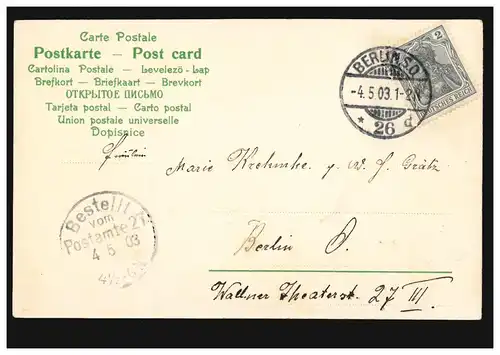 Carte Postale
Postkarte — Post card
Cartolina Postale — Levelező-Lap
Brefkort — Briefkaart — Brevkort
ОТКРЫТОЕ ПИСЬМО
Tarjeta postal — Carto postal
Union postale universelle
Dopisnice
2
DEUTSCHES REICH
BERLIN S.O.
-4.5.03.1-2
* 26 d
Fräulein
Marie Krehmke. p. W. J. Grätz.
Bestellt
vom
Postamte 27
4 5 03
Berlin O.
Wallner Theaterstr. 27 III.